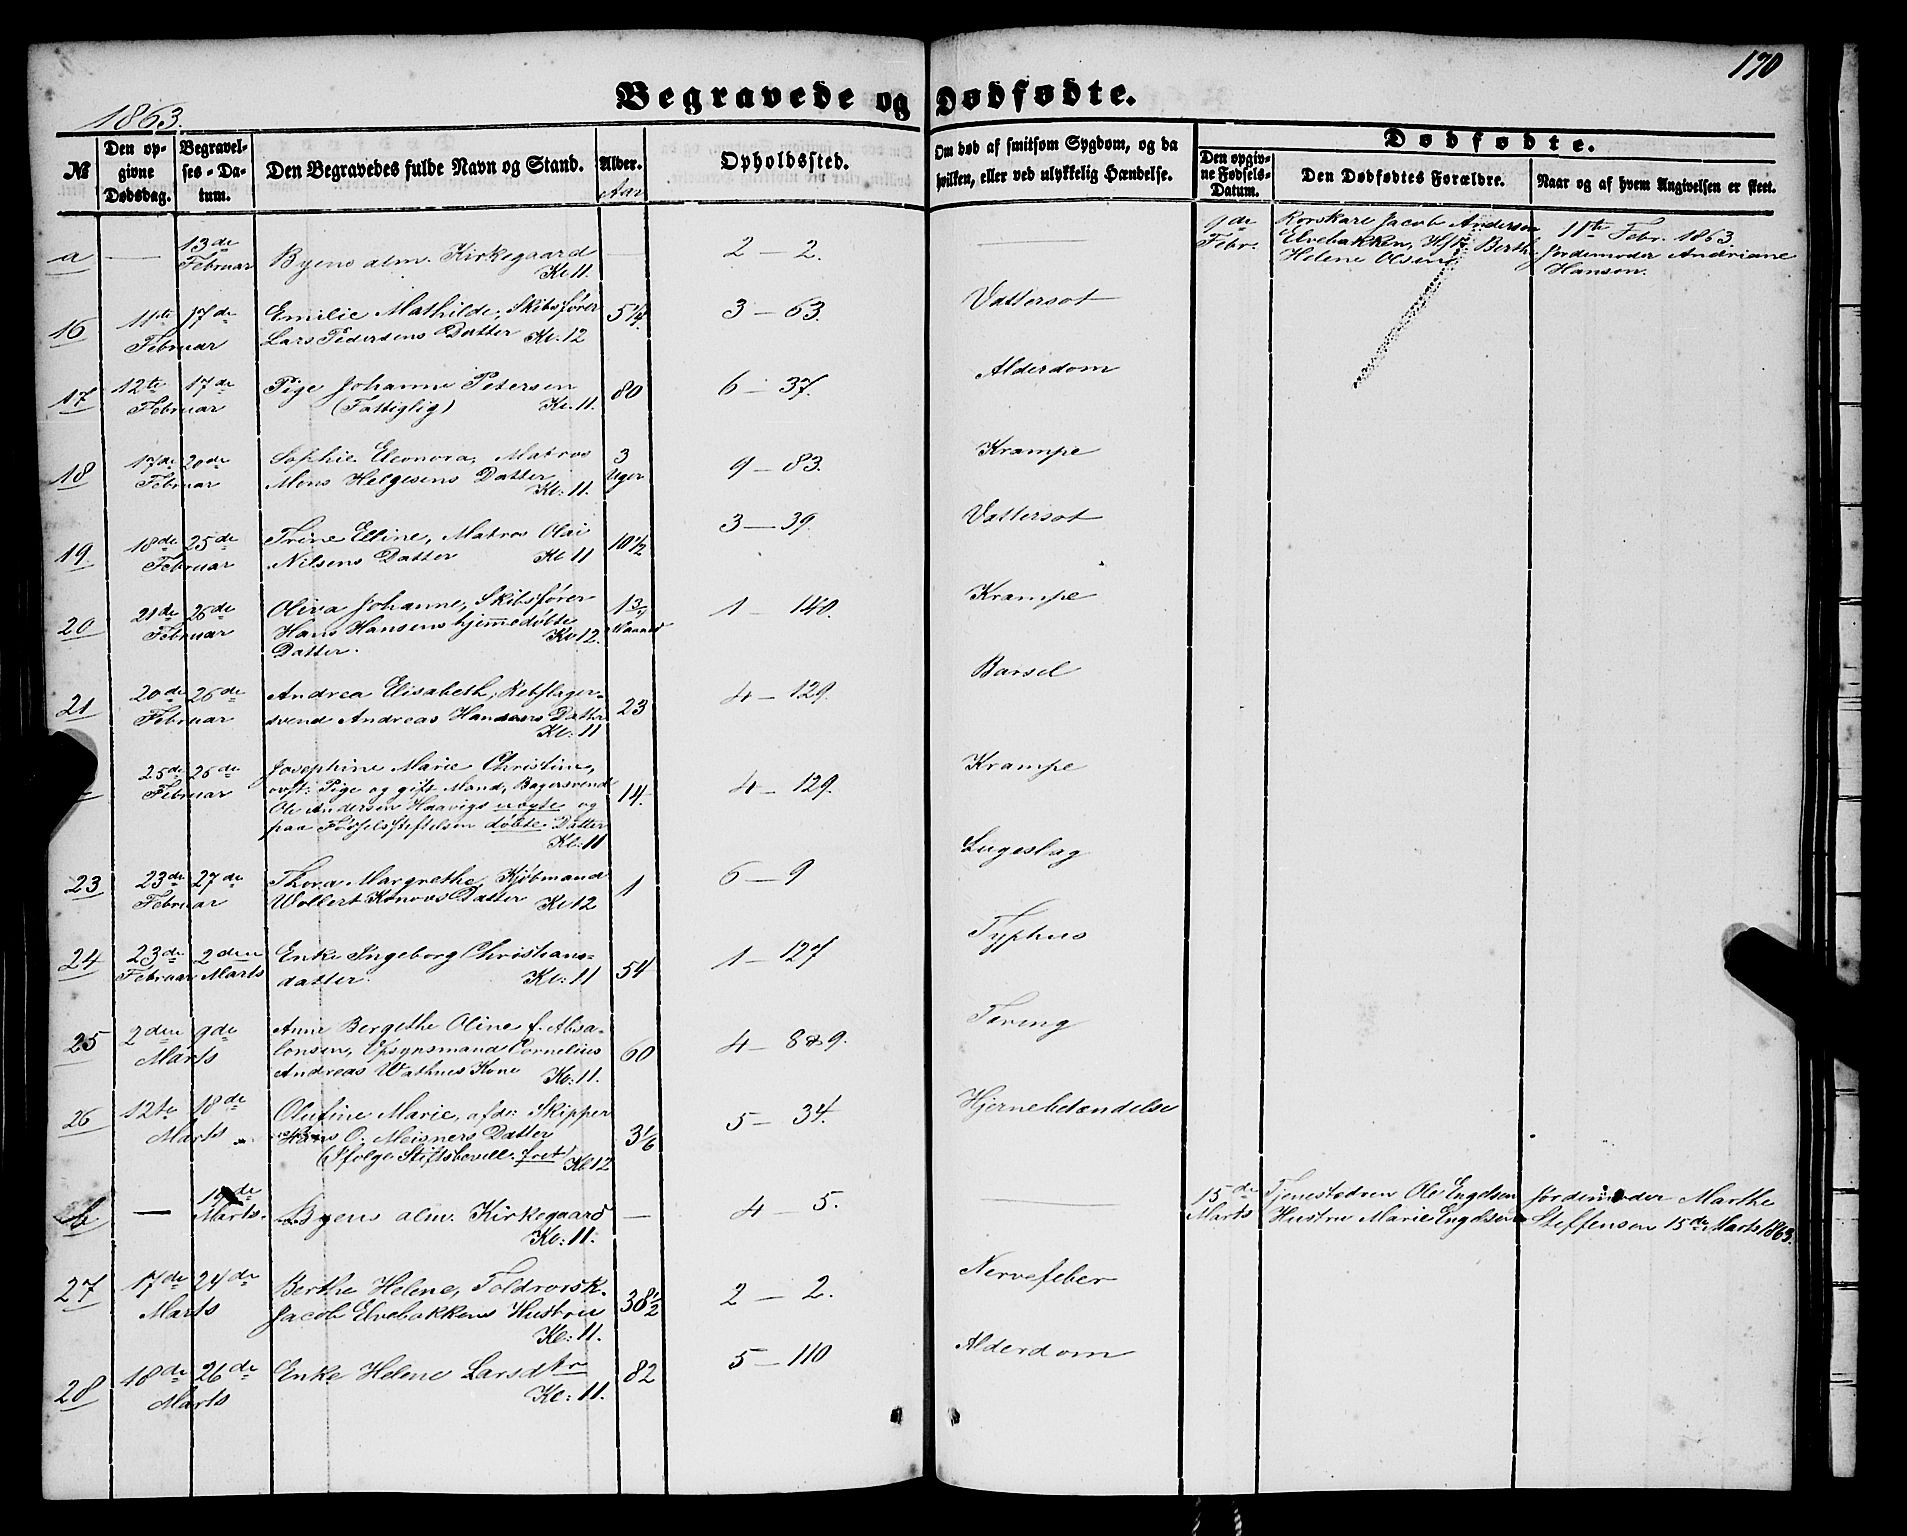 170
Begravede og Dødfødte.
1863.
№
Den opgivne Dødsdag.
Begravelses-Datum.
Den Begravedes fulde Navn og Stand.
Alder.
Aar
Opholdssted.
Om død af smitsom Sygdom, og da hvilken, eller ved ulykkelig Hændelse.
Dødfødte.
Den opgivne Fødsels-Datum.
Den Dødfødtes Forældre.
Naar og af hvem Angivelsen er skeet.
a — 13de Februar
Byens alm. Kirkegaard
Kl 11
— 2 — 2. —
9de Febr.
Jacob Andersen
Elvebakken, Berthe
Helene Olsen
11te Febr. 1863
Jordemoder Andriane
Hansen.
16 11te 17de Februar
Emilie Mathilde, Skibsfører
Lars Pedersens Datter Kl. 12
5¼ 3 — 63. Vattersot
17 12te 17de Februar
Pige Johanne Petersen
(Fattiglig) Kl. 11.
80 6 — 37. Alderdom
18 17de 20de Februar
Sophie Eleonora, Matros
Mons Helgesens Datter
Kl: 11.
3 Uger 9 — 83. Krampe
19 18de 25de Februar
Trine Elline, Matros Olai
Nilsens Datter Kl 11
10½ 3 — 39. Vattersot
20 21de 26de Februar
Oliva Johanne, Skibsfører
Hans Hansens hjemmedøbte
Kl 12.
Datter.
Maaned 1 — 140. Krampe
21 20de 26de Februar
Andrea Elisabeth, Rebslager-
svend Andreas Hansens Datter
Kl: 11
23 4 — 129. Barsel
25de 26de Februar
Josephine Marie Christine,
Pige og gift Mand, Bagersvend
Ole Andersen Haavigs uægte og
paa Fødselsstiftelsen døbte Datter
Kl: 11
14. 4 — 129. Krampe
23 23de 27de Februar
Thora Margrethe, Kjøbmand
Wollert Konows Datter Kl 12
1 6 — 9 Lugeslag
24 23de Februar 2den Marts
Enke Ingeborg Christians-
datter. Kl: 11
54 1 — 127 Typhus
25 2den 9de Marts
Anne Bergethe Oline f. Absa-
lonsen, Opsynsmand Cornelius
Andreas Wathnes Kone Kl: 11.
60 4 — 8&9. Tæring
26 12te 18de Marts
Olufine Marie, afdø: Skipper
Hans O. Meisners Datter
(Ifølge Stiftsbevill. frit) Kl 12
3⅙ 5 — 34. Hjernebetændelse
b — Marts.
Byens alm. Kirkegaard
Kl: 11.
— 4 — 5. —
15de Marts
Ole Engelsen
Hustru Marie Engelsen
Jordemoder Marthe
Steffensen 15de Marts 1863.
27 17de 24de Marts
Berthe Helene, Toldrorsk.
Jacob Elvebakkens Hustru
Kl: 11.
38½ 2 — 2. Nervefeber
28 18de 26de Marts
Enke Helene Larsdtr
Kl: 11.
82 5 — 110 Alderdom